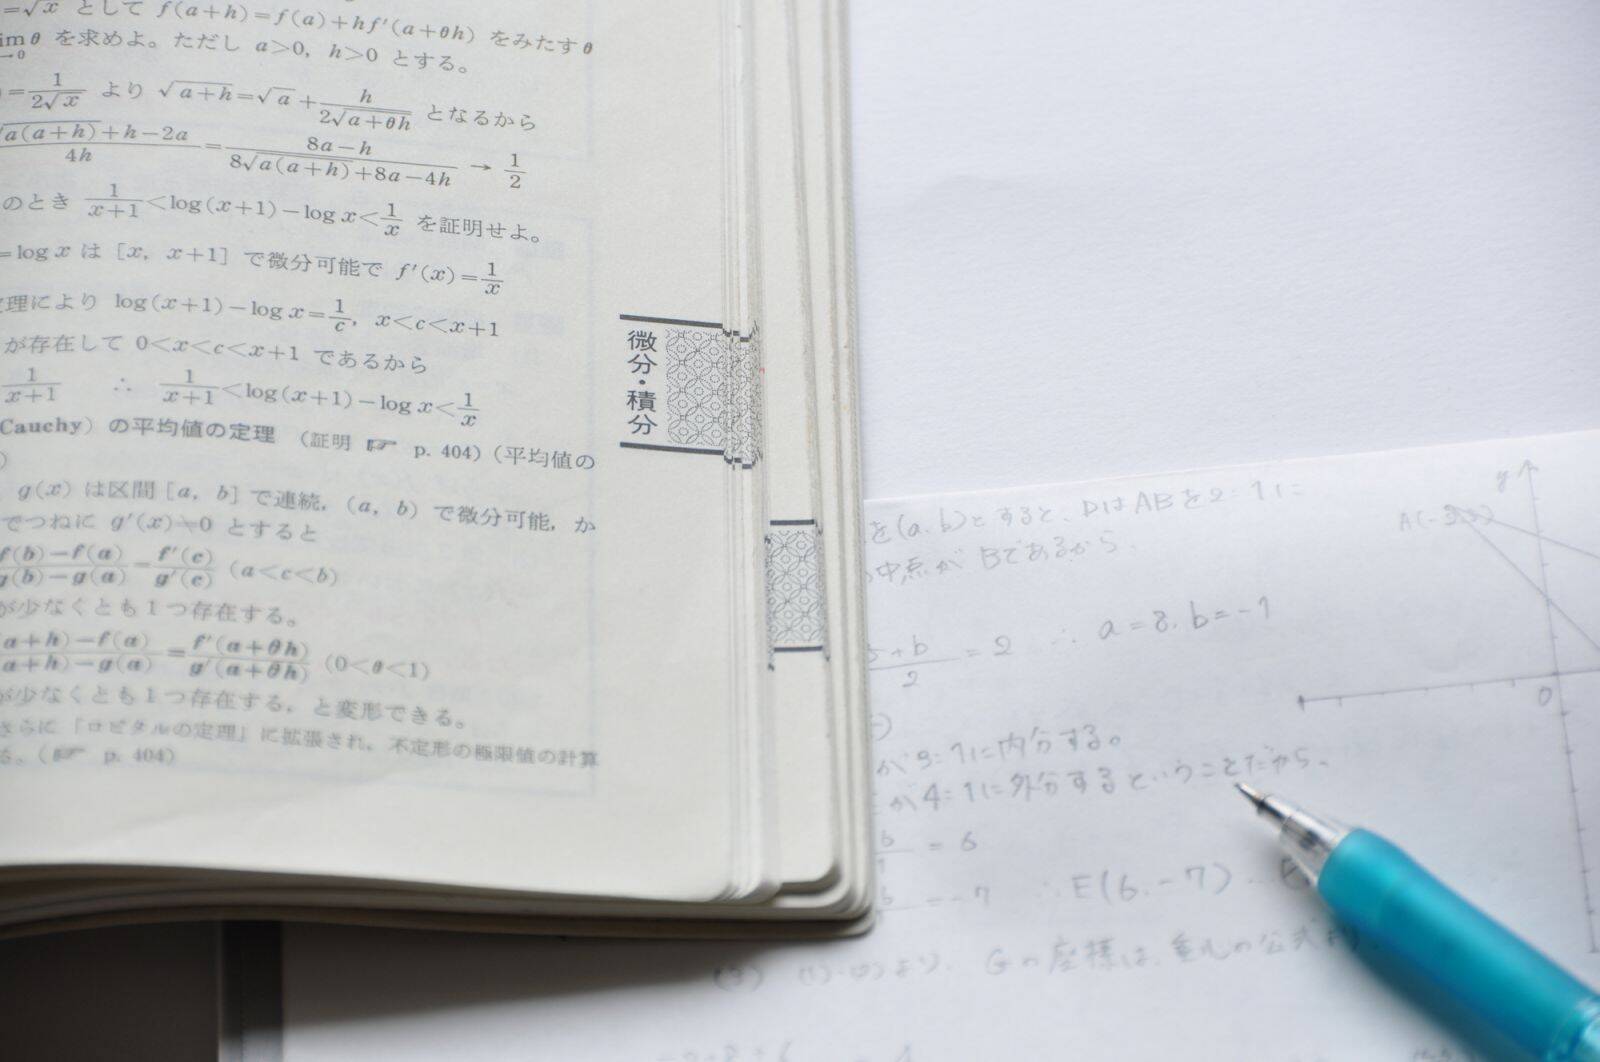 =√x として f(a+h)=f(a)+hf′(a+θh) をみたすθ
limθ を求めよ。ただし a>0, h>0 とする。
→0
=1/(2√x) より √(a+h)=√a+h/(2√(a+θh)) となるから
(√(a(a+h))+h−2a)/4h=(8a−h)/(8√(a(a+h))+8a−4h) → 1/2
のとき 1/(x+1)<log(x+1)−log x<1/x を証明せよ。
=log x は [x, x+1] で微分可能で f′(x)=1/x
理により log(x+1)−log x=1/c, x<c<x+1
が存在して 0<x<c<x+1 であるから
1/(x+1) ∴ 1/(x+1)<log(x+1)−log x<1/x
Cauchy) の平均値の定理 (証明 ☞ p. 404) (平均値の
)
g(x) は区間 [a, b] で連続, (a, b) で微分可能, か
でつねに g′(x)≠0 とすると
(f(b)−f(a))/(g(b)−g(a))=f′(c)/g′(c) (a<c<b)
が少なくとも1つ存在する。
(a+h)−f(a)/(a+h)−g(a)=f′(a+θh)/g′(a+θh) (0<θ<1)
が少なくとも1つ存在する, と変形できる。
さらに「ロピタルの定理」に拡張され, 不定形の極限値の計算
る。(☞ p. 404)
微分・積分
を(a.b)とすると、DはABを2:1に
中点がBであるから、
5+b/2 = 2 ∴ a=8. b=-1
が3:1に内分する。
が4:1に外分するということだから、
= 6
= -7 ∴E(6.-7)
(3) より、Gの座標は、重心の公式より
y
A(-
O